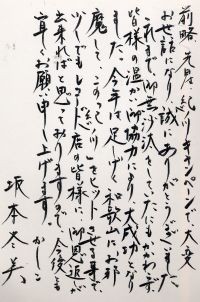 前略 先日は、紀ノ川キャンペーンで、大変
お世話になり誠にありがとうございました。
これまで、御無沙汰をしていたにもかかわらず
皆様の温かい御協力により、大成功となりま
した。今年は足しげく和歌山にお邪
魔して、この「紀ノ川」をヒットさせる事で
レコード店の皆様に、御恩返しが
出来ればと思っておりますので、今後とも
宜しくお願い申し上げます。
かしこ
坂本冬美